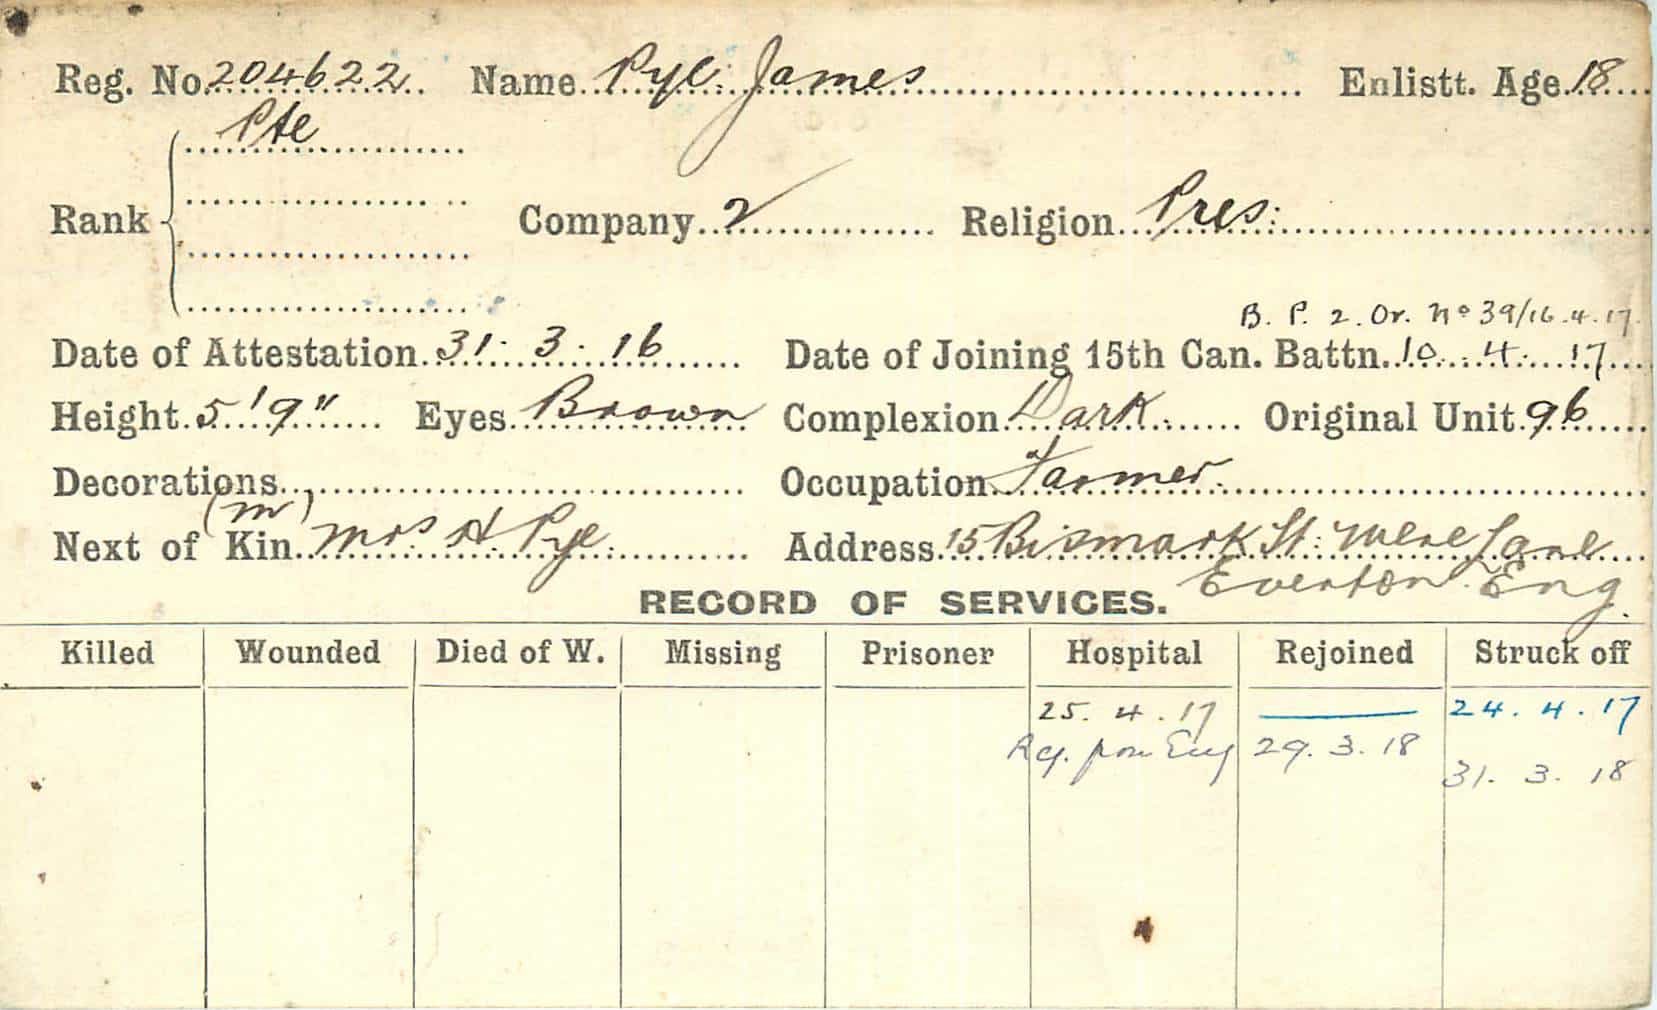 Reg. No. 204622 Name Pye: James Enlistt. Age 18
Pte
Rank Company 2 Religion Pres:
B. P. 2. Or. No 39/16.4.17.
Date of Attestation 31. 3. 16 Date of Joining 15th Can. Battn. 10. 4. 17
Height 5'9" Eyes Brown Complexion Dark. Original Unit 96
Decorations Occupation Farmer.
(m)
Next of Kin Mrs. H. Pye. Address 15 Bismark St: Lane
Everton. Eng.
RECORD OF SERVICES.
Killed Wounded Died of W. Missing Prisoner Hospital Rejoined Struck off
25. 4. 17 24. 4. 17
from Eng 29. 3. 18
31. 3. 18